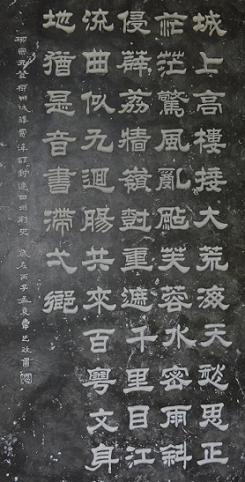 城上高樓接大荒海天愁思正
茫茫驚風亂颭芙蓉水密雨斜
侵薜荔牆嶺樹重遮千里目江
流曲似九迴腸共來百粵文身
地猶是音書滯弌鄉
柳宗元登柳州城樓寄漳汀封連四州刺史 歲在丙子孟夏